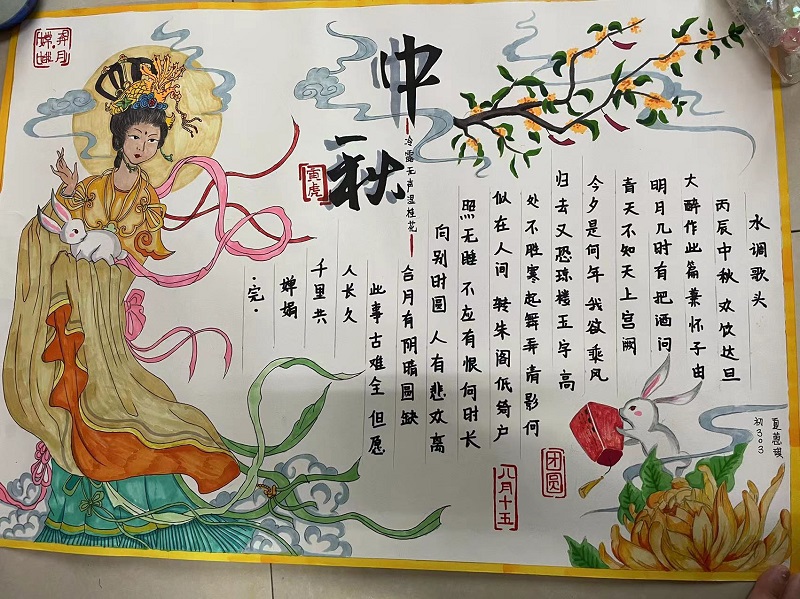 嫦娥
奔月
中秋
冷露无声湿桂花
寅虎
水调歌头
丙辰中秋 欢饮达旦
大醉作此篇 兼怀子由
明月几时有 把酒问
青天 不知天上宫阙
今夕是何年 我欲乘风
归去 又恐琼楼玉宇 高
处不胜寒 起舞弄清影 何
似在人间 转朱阁 低绮户
照无眠 不应有恨 何时长
向别时圆 人有悲欢离
合月有阴晴圆缺
此事古难全 但愿
人长久
千里共
婵娟
·完·
团圆
八月十五
初303